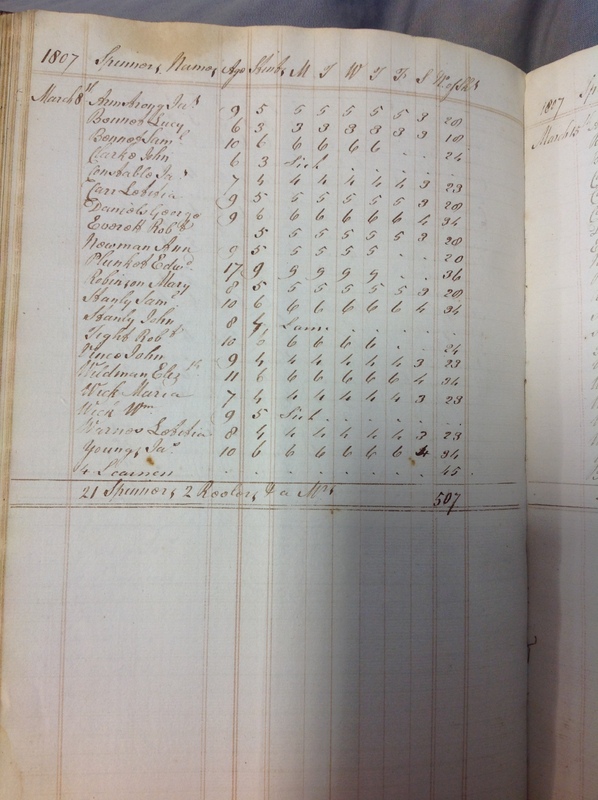 1807 Spinners Names Age Stint M T W T F S No of Sks
March 8th Armstrong Jas 9 5 5 5 5 5 5 3 28
Bennet Lucy 6 3 3 3 3 3 3 3 18
Bennet Saml 10 6 6 6 6 6 . . 24
Clarke John 6 3 Sick . . . .
Constable Jas 7 4 4 4 4 4 4 3 23
Carr Lætitia 9 5 5 5 5 5 5 3 28
Daniels George 9 6 6 6 6 6 6 4 34
Everett Robt 5 5 5 5 5 5 3 28
Newman Ann 9 5 5 5 5 5 . . 20
Plunket Edwd 17 9 9 9 9 9 . . 36
Robinson Mary 8 5 5 5 5 5 5 3 28
Stanly Saml 10 6 6 6 6 6 6 4 34
Stanly John 8 4 Lame . . . .
Tight Robt 10 6 6 6 6 6 . . 24
Vince John 9 4 4 4 4 4 4 3 23
Wildman Elizth 11 6 6 6 6 6 6 4 34
Wick Maria 7 4 4 4 4 4 4 3 23
Wick Wm 9 5 Sick . . . .
Warnes Lætitia 8 4 4 4 4 4 4 3 23
Youngs Jas 10 6 6 6 6 6 6 4 34
. . . . . . . . 45
21 Spinners 2 Reelers & a Mrs 507
1807
March 15